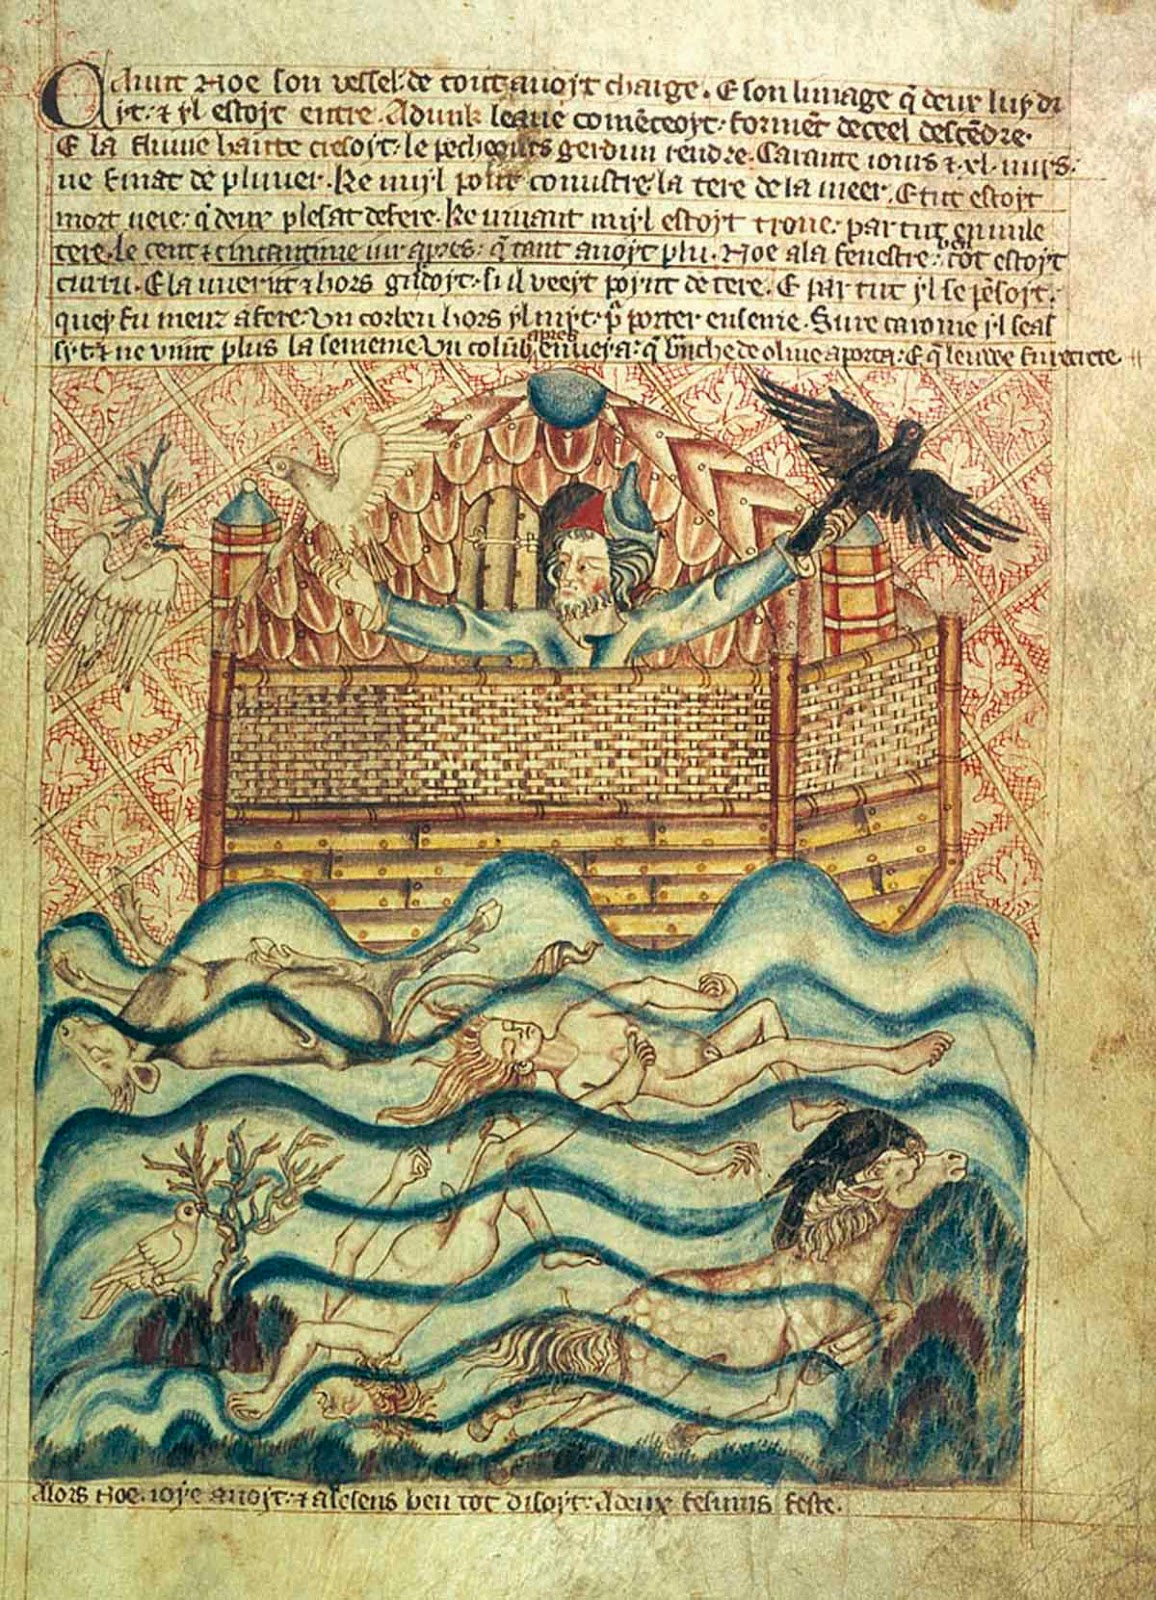 Qaunt Noe son vessel de tout auoyt charge. E son linnage q̃ deux luy di
yt. ⁊ yl estoyt entre. Adunk leaue comẽceoyt. formẽt deceel descẽdre.
E la fluuie haute cresoyt. le pecheours gerdun rendre. Carante iours ⁊ .xl. nuys.
ne finat de pluuer. Ke nuyl pout conustre la tere de la meer. E tut estoyt
mort ueie. q̃ deux plesat defere. Ke uiuant nuyl estoyt troue. par tut en nule
tere. Le cent ⁊ cincantime iur apres. q̃ tant auoyt plu. Noe ala fenestre. tot estoyt
curru. E la uuerit ⁊ hors gittoyt. si il veeyt poynt de tere. E par tut yl se pẽsoyt.
quey fu meuz a fere. Vn corbeu hors yl myt. p̃ porter enseine. Sure caroine yl seas
syt. ⁊ ne vint plus la semeine Vn colũb apres enueya. q̃ b̃nche de oliue aporta. E q̃ leuwe fu retrete
Alors Noe. ioye auoyt. ⁊ a lesens ben tot disoyt. A deux fesums feste.